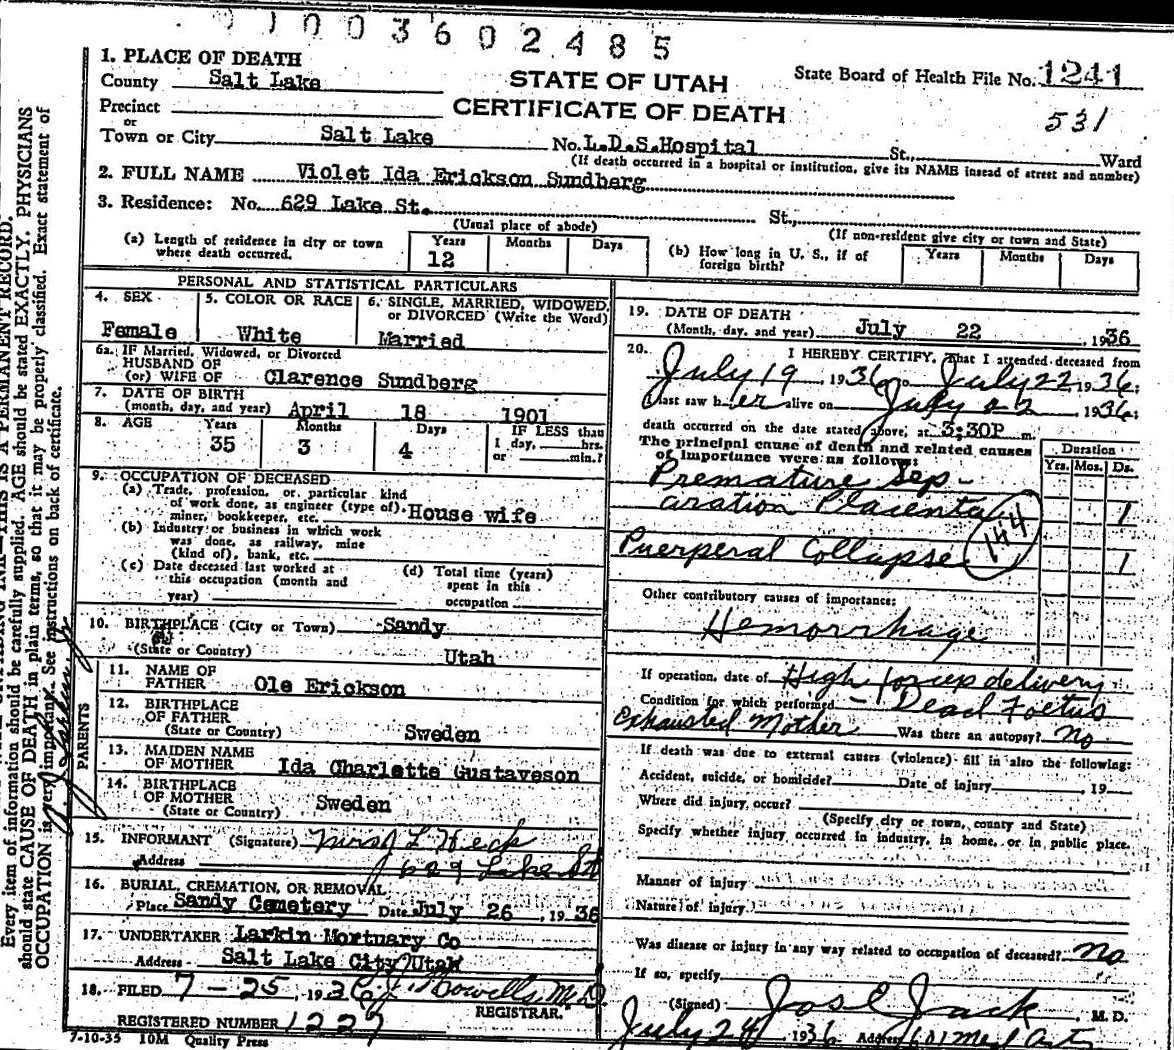 01003602485
1. PLACE OF DEATH
County Salt Lake
STATE OF UTAH
State Board of Health File No. 1241
Precinct
CERTIFICATE OF DEATH
531
or
Town or City Salt Lake No. L.D.S.Hospital St., Ward
(If death occurred in a hospital or institution, give its NAME instead of street and number)
2. FULL NAME Violet Ida Erickson Sundberg
3. Residence: No. 629 Lake St. St.,
(Usual place of abode) (If non-resident give city or town and State)
(a) Length of residence in city or town where death occurred. Years 12 Months Days
(b) How long in U. S., if of foreign birth? Years Months Days
PERSONAL AND STATISTICAL PARTICULARS
4. SEX Female
5. COLOR OR RACE White
6. SINGLE, MARRIED, WIDOWED, or DIVORCED (Write the Word) Married
6a. IF Married, Widowed, or Divorced
HUSBAND OF
(or) WIFE OF Clarence Sundberg
7. DATE OF BIRTH
(month, day, and year) April 18 1901
8. AGE Years 35 Months 3 Days 4 IF LESS than
1 day, hrs.
or min.?
9. OCCUPATION OF DECEASED
(a) Trade, profession, or particular kind
of work done, as engineer (type of),
miner, bookkeeper, etc. House wife
(b) Industry or business in which work
was done, as railway, mine
(kind of), bank, etc.
(c) Date deceased last worked at
this occupation (month and
year)
(d) Total time (years)
spent in this
occupation
10. BIRTHPLACE (City or Town) Sandy
(State or Country) Utah
PARENTS
11. NAME OF
FATHER Ole Erickson
12. BIRTHPLACE
OF FATHER
(State or Country) Sweden
13. MAIDEN NAME
OF MOTHER Ida Charlette Gustaveson
14. BIRTHPLACE
OF MOTHER Sweden
(State or Country)
15. INFORMANT (Signature) Mrs J L Heck
Address 629 Lake St
16. BURIAL, CREMATION, OR REMOVAL
Place Sandy Cemetery Date July 26, 1936
17. UNDERTAKER Larkin Mortuary Co
Address Salt Lake City Utah
18. FILED 7-25, 1936 Howells M.D.
REGISTRAR.
REGISTERED NUMBER 1227
7-10-35 10M Quality Press
19. DATE OF DEATH
(Month, day, and year) July 22, 1936
20. I HEREBY CERTIFY, That I attended deceased from
July 19 1936, to July 22 1936;
last saw her alive on July 22 1936;
death occurred on the date stated above, at 3:30P m.
The principal cause of death and related causes
of importance were as follows:
Duration
Yrs. Mos. Ds.
Premature Sep-
aration Placenta 1
144
Puerperal Collapse 1
Other contributory causes of importance:
Hemorrhage
If operation, date of High forcep delivery
Condition for which performed - Dead Foetus
Exhausted Mother Was there an autopsy? no
If death was due to external causes (violence) fill in also the following:
Accident, suicide, or homicide? Date of injury 19
Where did injury occur?
(Specify city or town, county and State)
Specify whether injury occurred in industry, in home, or in public place.
Manner of injury
Nature of injury
Was disease or injury in any way related to occupation of deceased? no
If so, specify
(Signed) Jos E Jack M. D.
July 24 1936 Address 601 Med Arts
Every item of information should be carefully supplied. AGE should be stated EXACTLY. PHYSICIANS
should state CAUSE OF DEATH in plain terms, so that it may be properly classified. Exact statement of
OCCUPATION is very important. See instructions on back of certificate.
THIS IS A PERMANENT RECORD.